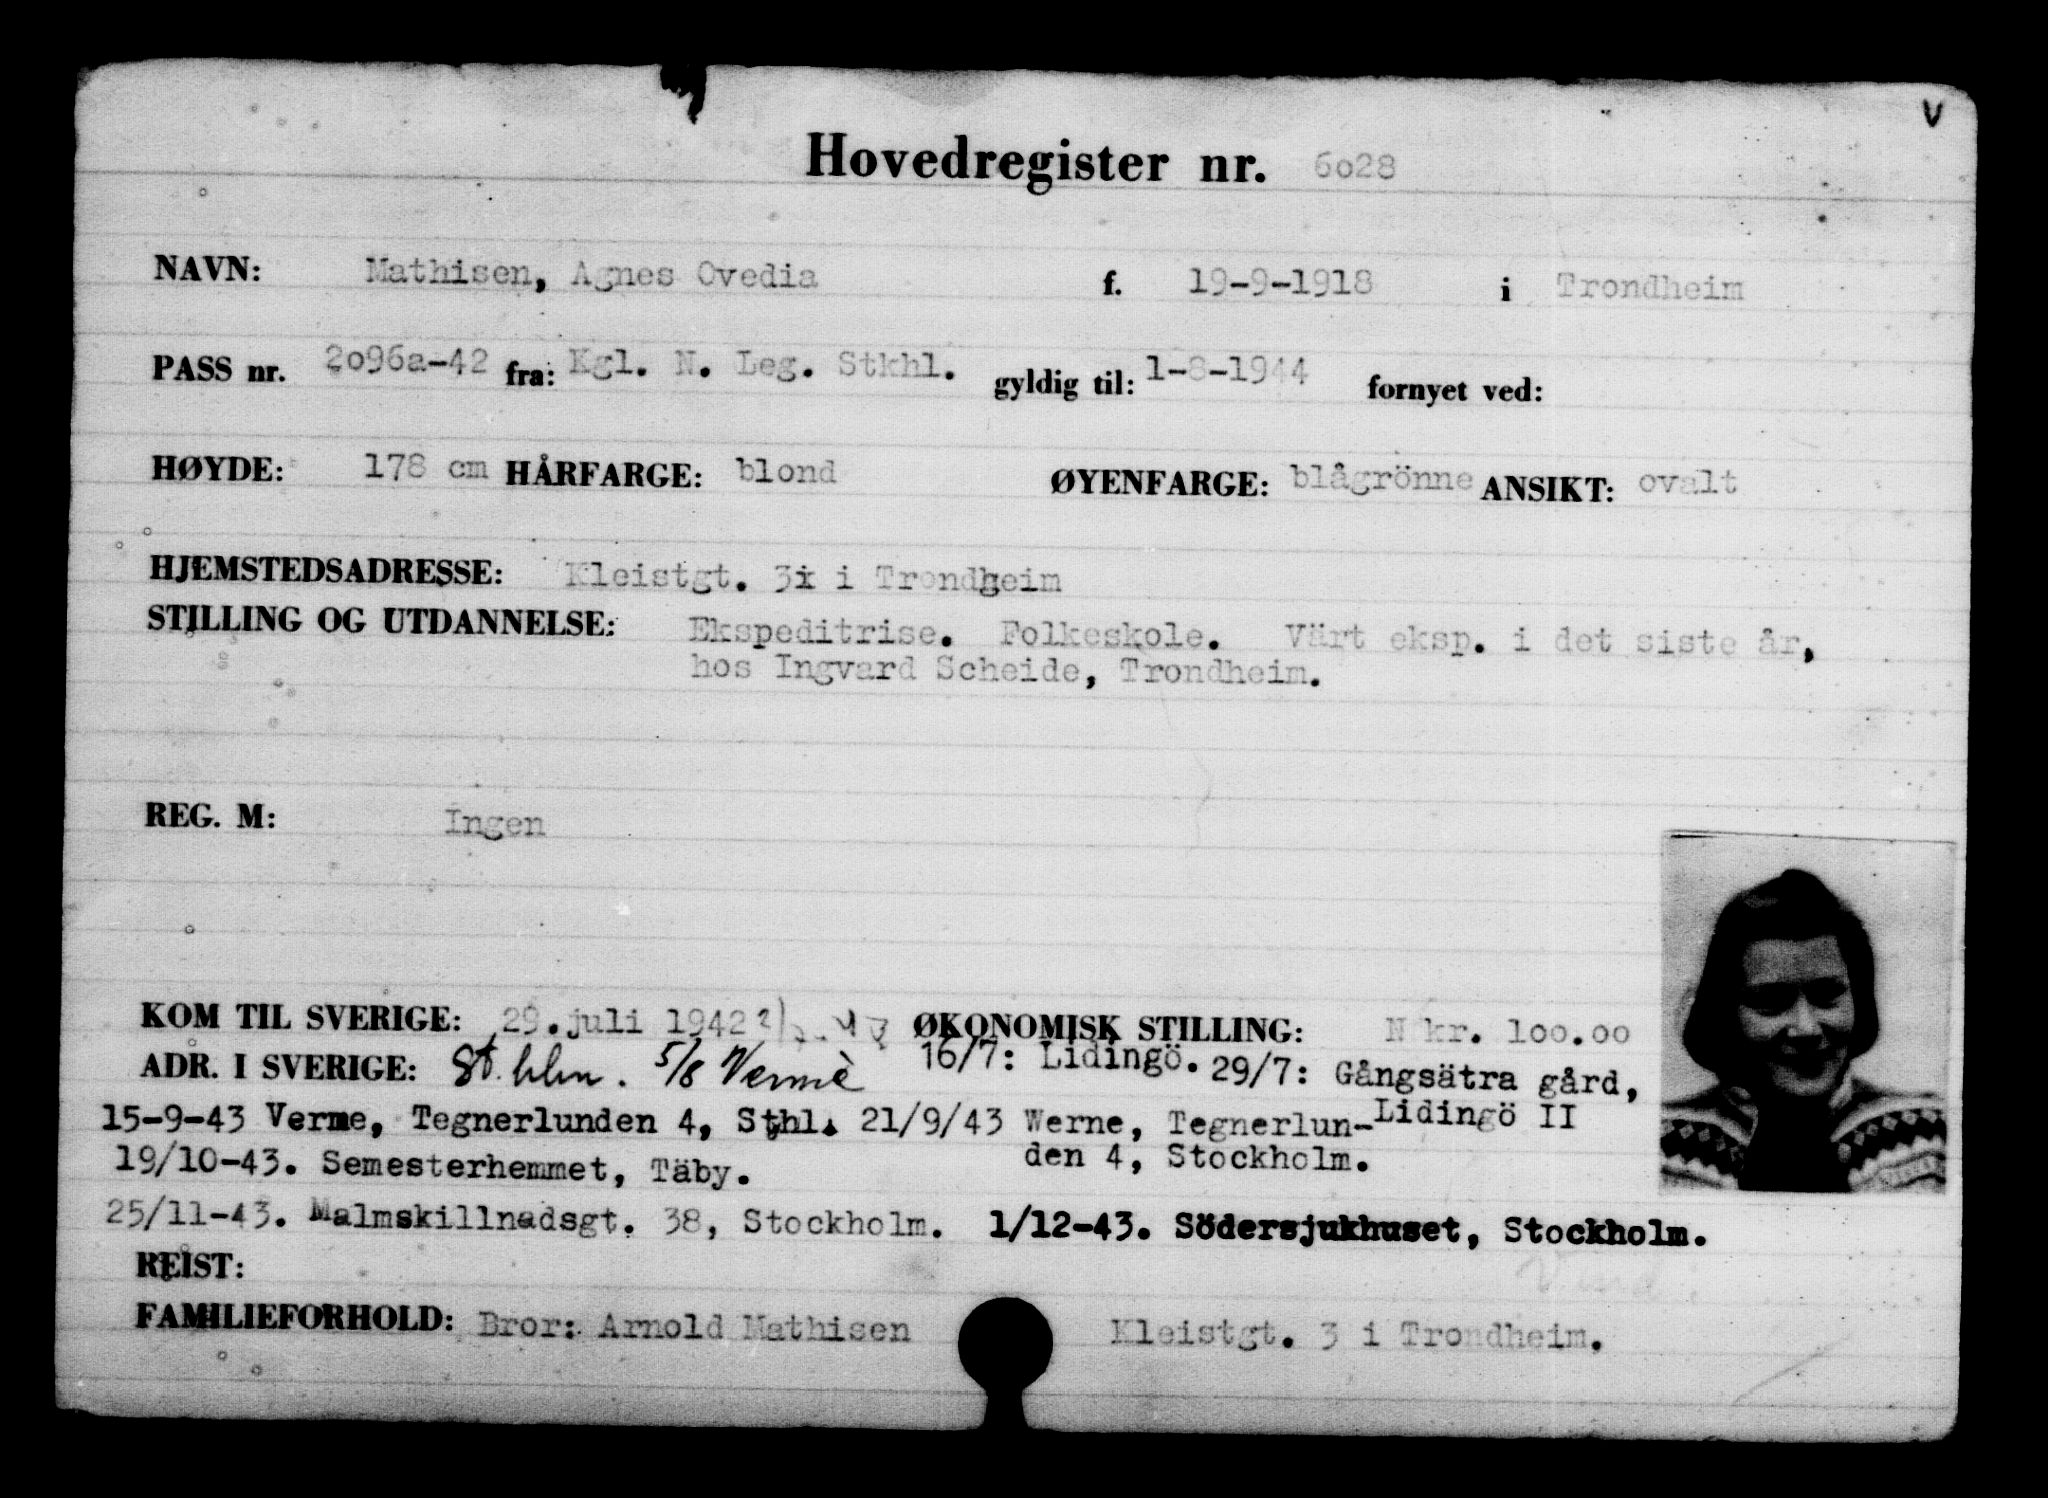 V
Hovedregister nr. 6o28
NAVN: Mathisen, Agnes Ovedia f. 19-9-1918 i Trondheim
PASS nr. 2o96a-42 fra: Kgl. N. Leg. Stkhl. gyldig til: 1-8-1944 fornyet ved:
HØYDE: 178 cm HÅRFARGE: blond ØYENFARGE: blågrönne ANSIKT: ovalt
HJEMSTEDSADRESSE: Kleistgt. 3 i Trondheim
STILLING OG UTDANNELSE: Ekspeditrise. Folkeskole. Värt eksp. i det siste år,
hos Ingvard Scheide, Trondheim.
REG. M: Ingen
KOM TIL SVERIGE: 29.juli 1942 ØKONOMISK STILLING: N kr. 1oo.oo
ADR. I SVERIGE: St.hlm. 5/8 Vermè 16/7: Lidingö. 29/7: Gångsätra gård,
Lidingö II
15-9-43 Verme, Tegnerlunden 4, Sthl. 21/9/43 Werne, Tegnerlun-
den 4, Stockholm.
19/10-43. Semesterhemmet, Täby.
25/11-43. Malmskillnadsgt. 38, Stockholm. 1/12-43. Södersjukhuset, Stockholm.
REIST:
FAMILIEFORHOLD: Bror: Arnold Mathisen Kleistgt. 3 i Trondheim.